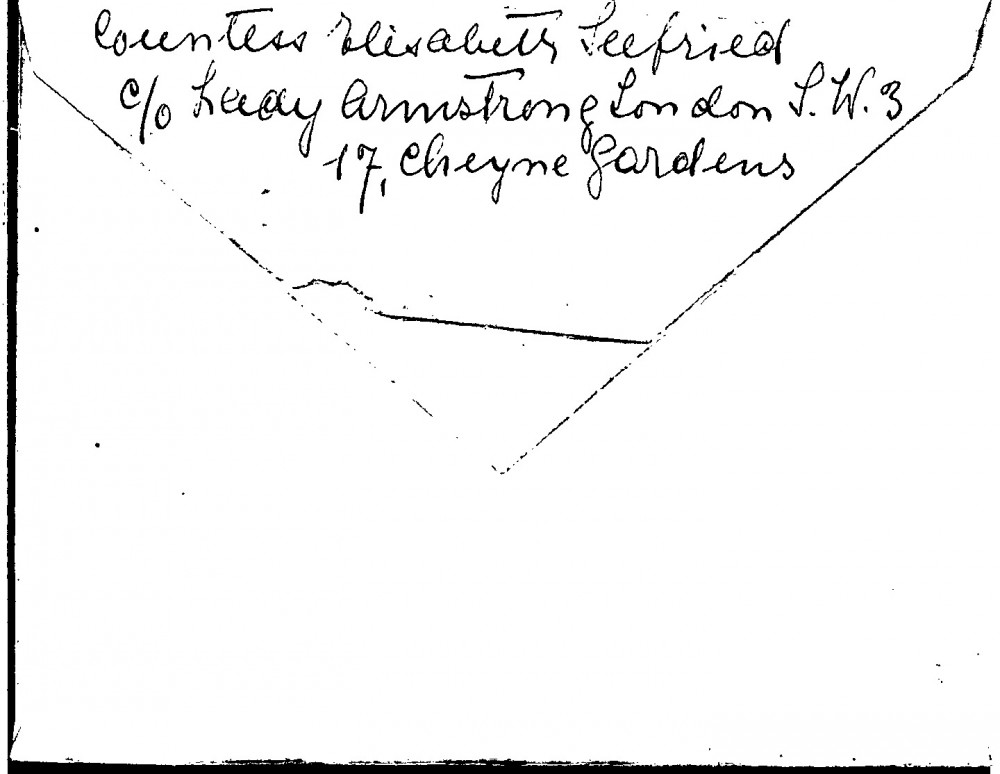 Countess Elisabeth Seefried
c/o Lady Armstrong London S.W.3
17, Cheyne Gardens